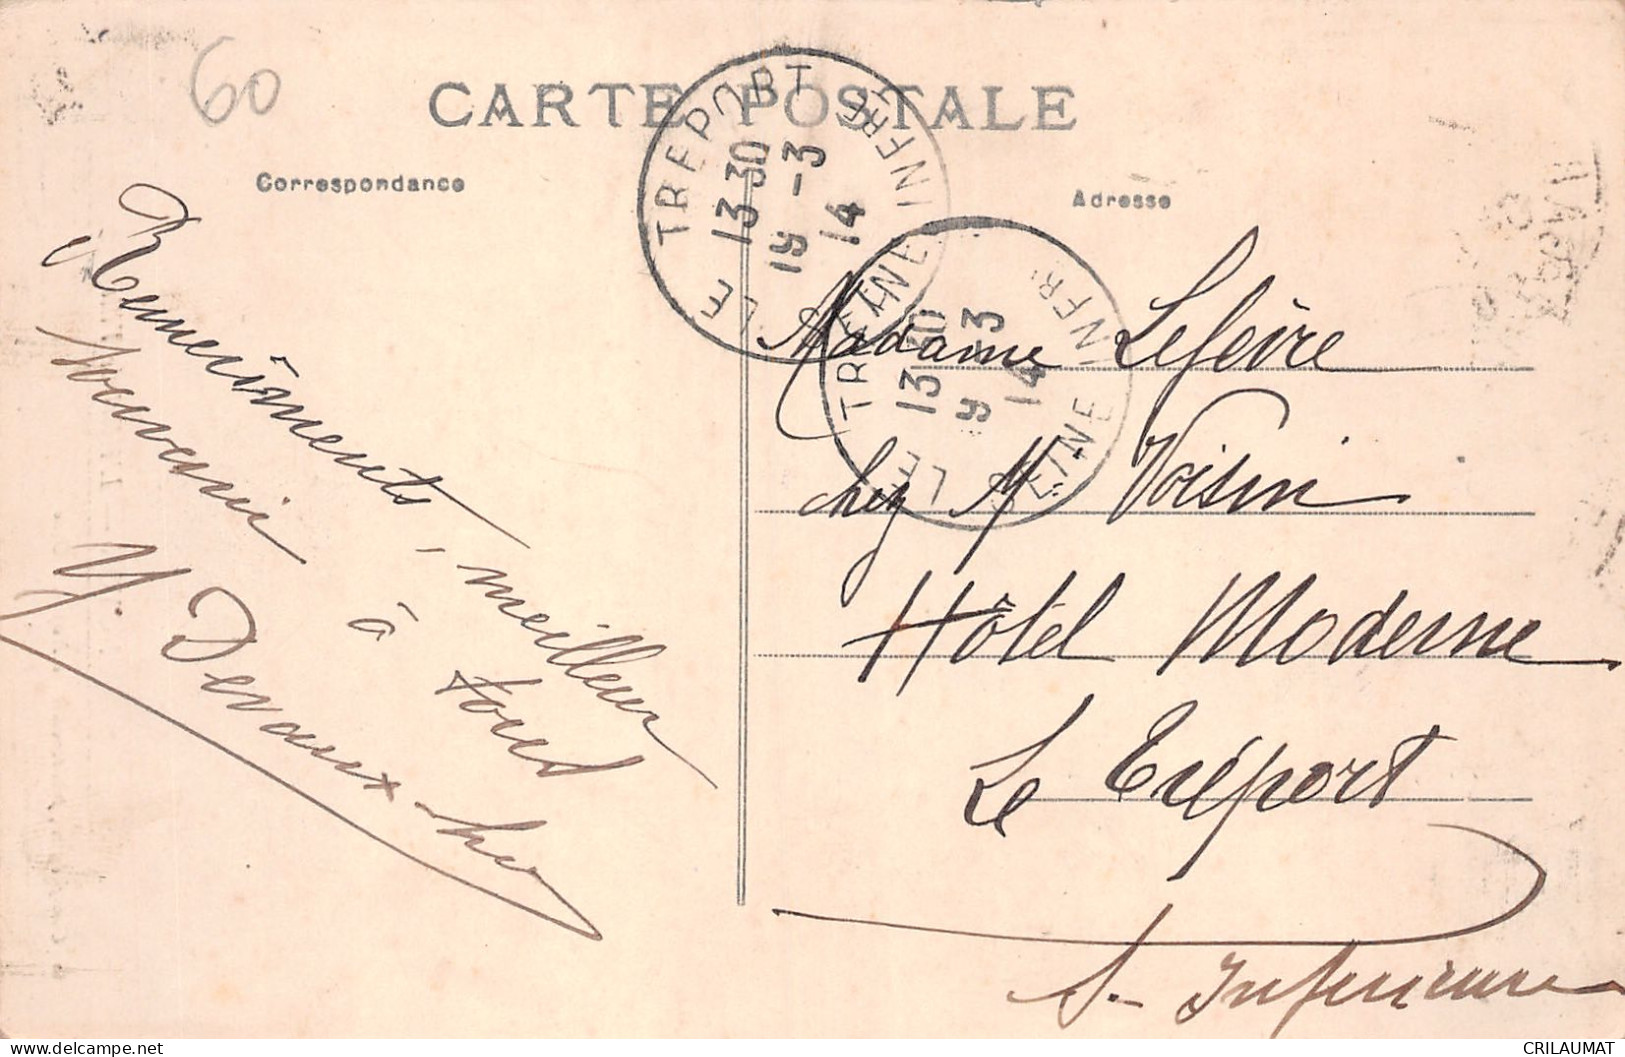 60
CARTE POSTALE
Correspondance
Adresse
LE TREPORT
13 30
19 -3
14
SEINE INFRE
LE TREPORT
13 30
19 -3
14
SEINE INFRE
Remerciments, meilleur
souvenir à tous
Y. Devaux
Madame Lefèvre
chez M Voisin
Hôtel Moderne
Le Tréport
S- Inférieure
CRILAUMAT